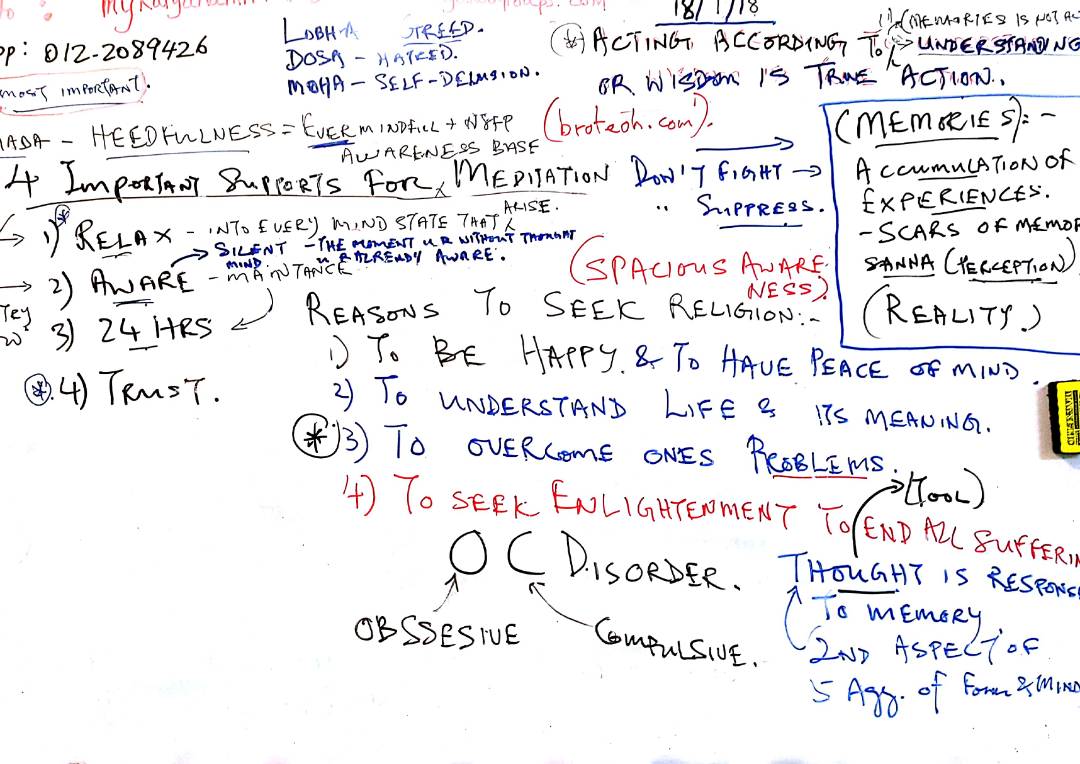 18/1/18
pp: 012-2089426
MOST IMPORTANT.
LOBHA GREED.
DOSA - HATRED.
MOHA - SELF-DELUSION.
(*) ACTING ACCORDING TO UNDERSTANDING
OR WISDOM IS TRUE ACTION.
(MEMORIES IS NOT
(broteoh.com).
HEEDFULLNESS = EVERMINDFULL +
AWARENESS BASE
4 IMPORTANT SUPPORTS FOR MEDITATION
DON'T FIGHT →
" SUPPRESS.
* 1) RELAX - INTO EVERY MIND STATE THAT ARISE.
SILENT MIND - THE MOMENT U R WITHOUT THOUGHT
U R ALREADY AWARE.
2) AWARE - MAINTANCE
3) 24 HRS
* 4) TRUST.
(SPACIOUS AWARE
NESS).
(MEMORIES):-
ACCUMULATION OF
EXPERIENCES.
- SCARS OF MEMOR
SANNA (PERCEPTION)
(REALITY.)
REASONS TO SEEK RELIGION:-
1) TO BE HAPPY. & TO HAVE PEACE OF MIND.
2) TO UNDERSTAND LIFE & ITS MEANING.
* 3) TO OVERCOME ONES PROBLEMS.
4) TO SEEK ENLIGHTENMENT TO END ALL SUFFERIN
(TOOL)
O C DISORDER.
OBSSESIVE
COMPULSIVE.
THOUGHT IS RESPONS
TO MEMORY.
2ND ASPECT OF
5 Agg. of Form & MIND